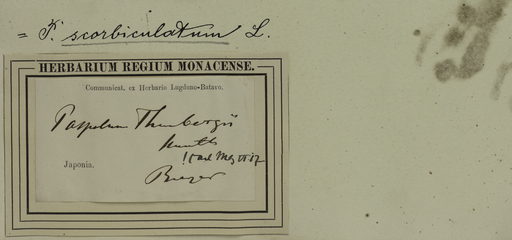 = P. scorbiculatum L.
HERBARIUM REGIUM MONACENSE.
Communicat. ex Herbario Lugduno-Batavo.
Paspalum Thunbergii
Kunth
Japonia.
Buerger